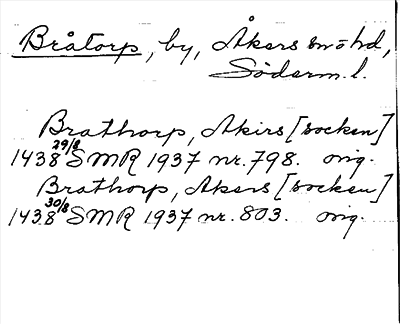 Bråtorp, by, Åkers sn o hd,
Söderm. l.
Brathorp, Akirs [socken]
1438 29/8 SMR 1937 nr. 798. orig.
Brathorp, Akers [socken]
1438 30/8 SMR 1937 nr. 803. orig.